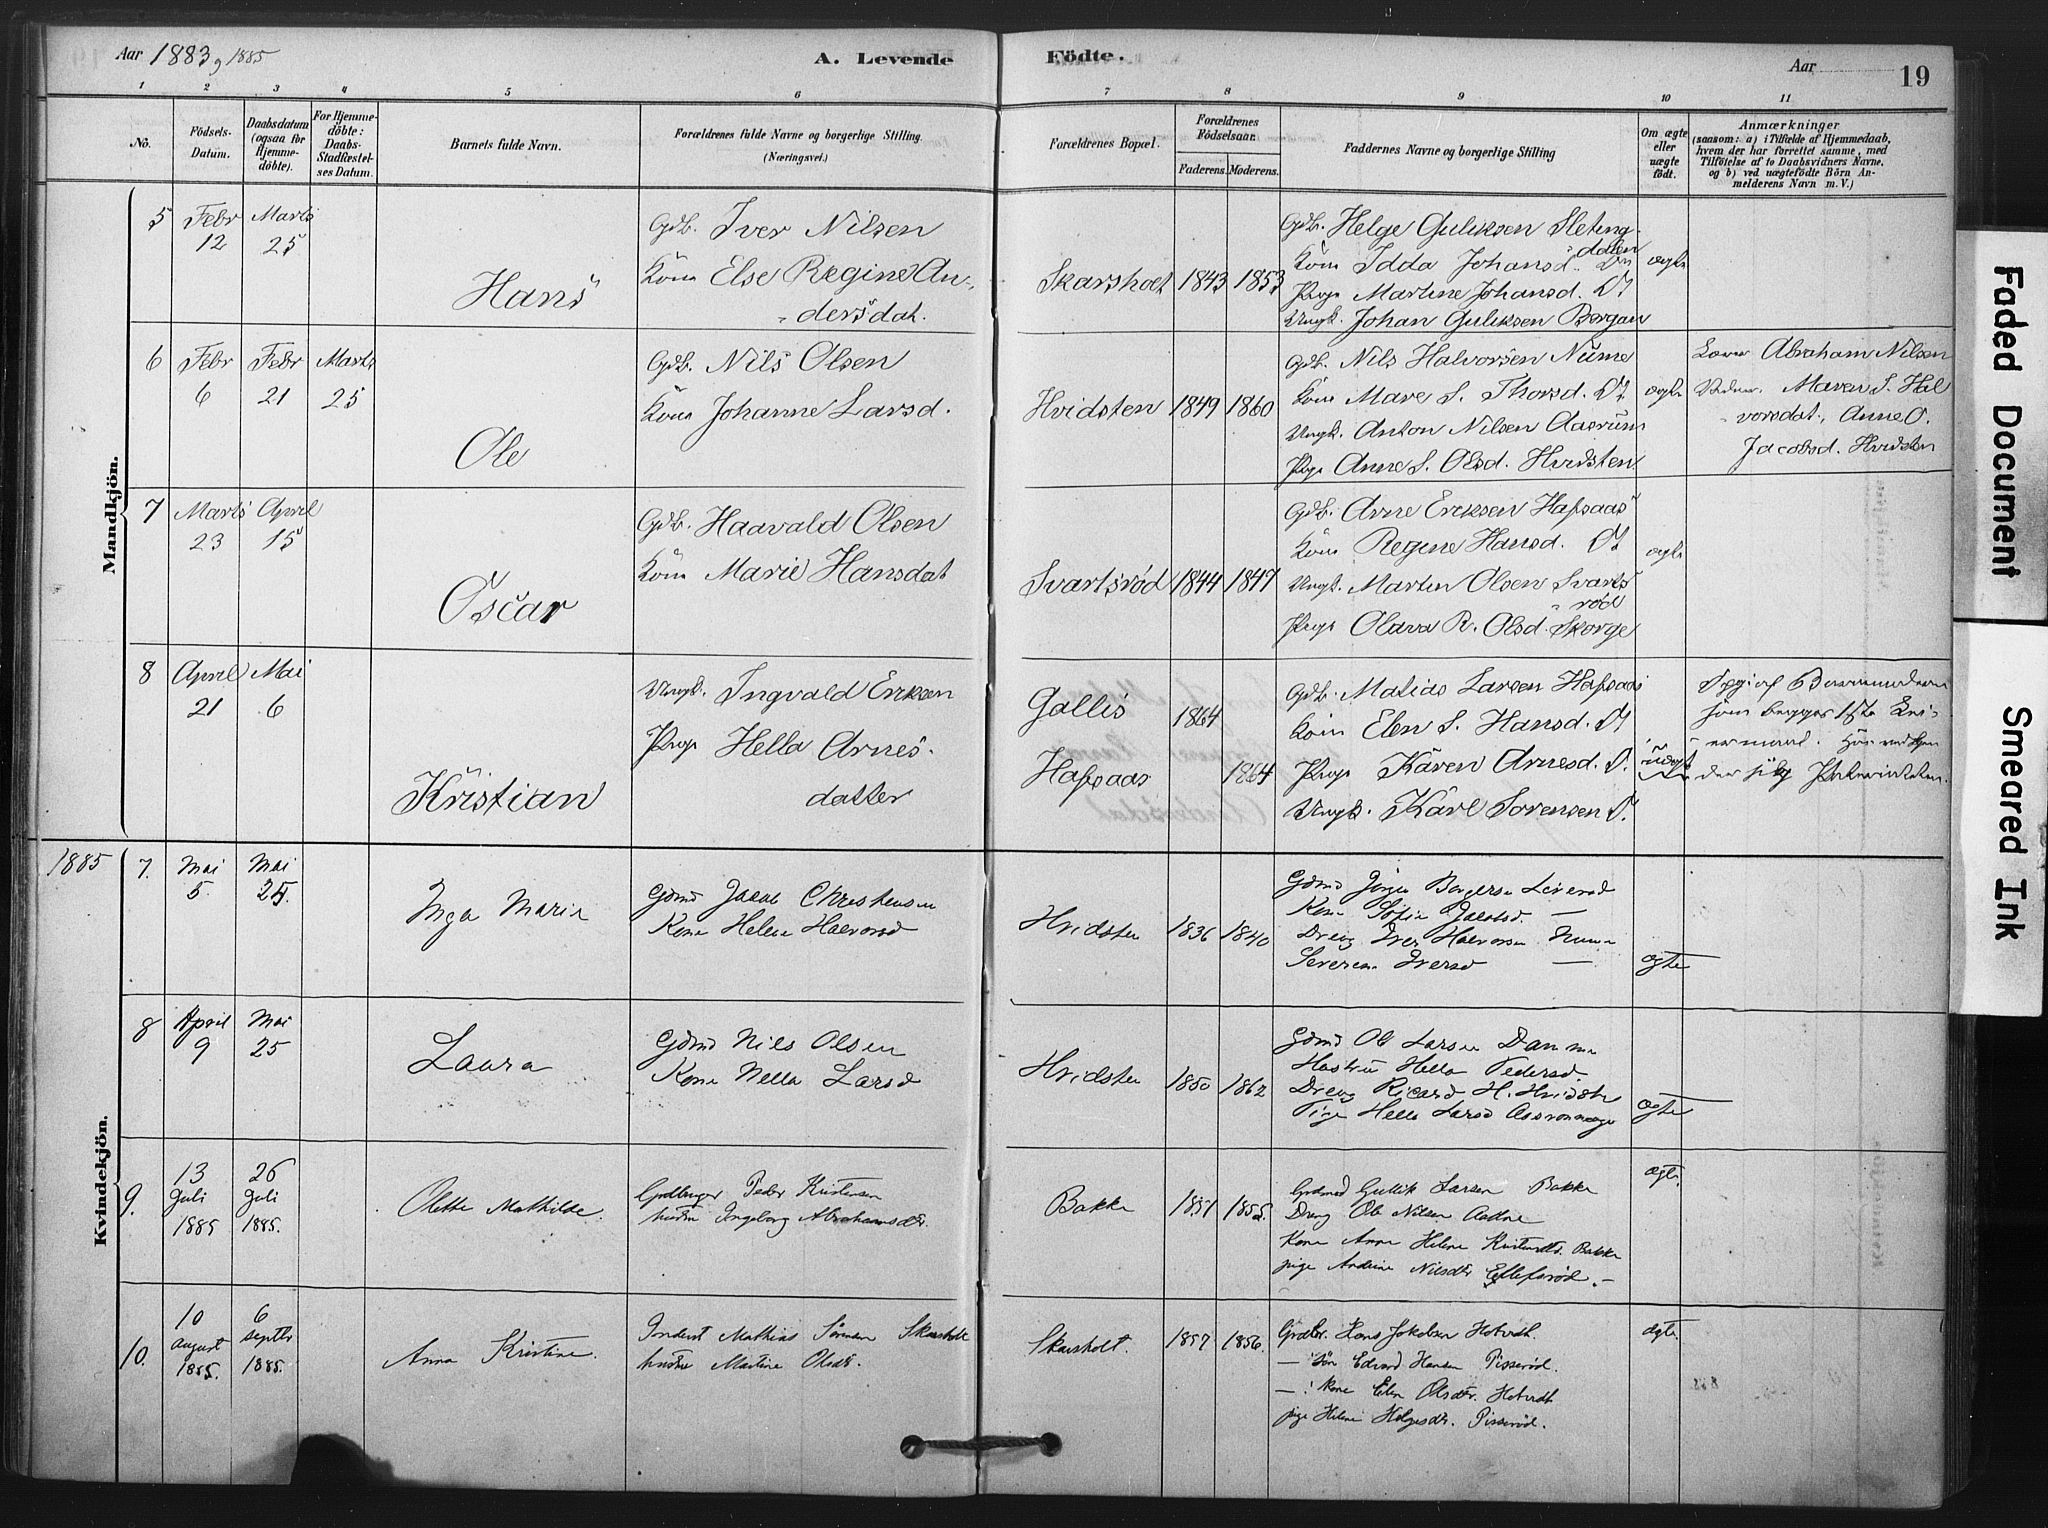 Aar 1883 og 1885
A. Levende Födte.
Aar
19
1 2 3 4 5 6 7 8 9 10 11
No.
Födsels-Datum.
Daabsdatum (ogsaa for Hjemme-döbte).
For Hjemme-döbte: Daabs-Stadfæstel-ses Datum.
Barnets fulde Navn.
Forældrenes fulde Navne og borgerlige Stilling. (Næringsvei.)
Forældrenes Bopæl.
Forældrenes Födselsaar.
Faderens. Moderens.
Faddernes Navne og borgerlige Stilling
Om ægte eller uægte födt.
Anmærkninger
(saasom: a) i Tilfælde af Hjemmedaab,
hvem der har forrettet samme, med
Tilföielse af to Daabsvidners Navne,
og b) ved uægtefödte Börn An-
melderens Navn m. V.)
Mandkjön.
5 Febr 12 Marts 25
Hans
Gdb. Iver Nilsen
Kone Else Regine An-
dersdat.
Skarsholt 1843 1853
Gdb. Helge Guliksen Sleting-
dalen
Kone Idda Johansd. Dn
Pige Martine Johansd. Dt
Ungk. Johan Guliksen Bergan
ægte
6 Febr 6 Febr 21 Marts 25
Ole
Gdb. Nils Olsen
Kone Johanne Larsd.
Hvidsten 1849 1860
Gdb. Nils Halvorsen Nume
Kone Mare S. Thorsd. Dt
Ungk. Anton Nilsen Aasrum
Pige Anne S. Olsd. Hvidsten
ægte
Abraham Nilsen
Maren S. Hal
vorsdat, Anne O.
Jacobsd. Hvidsten
7 Marts 23 April 15
Oscar
Gdb. Haavald Olsen
Kone Marie Hansdat
Svartsrød 1844 1847
Gdb. Arne Eriksen Hafsaas
Kone Regine Hansd. Dt
Ungk. Martin Olsen Svarts
rød
Pige Olava R. Olsd. Skorge
ægte
8 April 21 Mai 6
Kristian
Ungk. Ingvald Eriksen
Pige Hella Arnes-
datter
Gallis 1864
Hafsaas 1864
Gdb. Matias Larsen Hafsaas
Kone Elen S. Hansd. Dt
Pige Karen Arnesd. D.
Ungk. Karl Sorensen D.
uægte
Opgivet Barnemoderen
som begges 1ste Lei-
ermaal.
1885
Kvindekjön.
7. Mai 5. Mai 25.
Inga Marie
Gdmd Jacob Christensen
Kone Helene Halvorsd
Hvidsten 1836 1840
Gdmd Jörgen Borgersen
Kone Sofie Jacobsd. —
Dreng Iver Halvorsen Nume
Severine Iversd —
ægte
8 April 9 Mai 25
Laura
Gdmd Nils Olsen
Kone Nella Larsd
Hvidsten 1850 1862
Gdmd Ole Larsen Damm
Hustru Hella Pedersd
Dreng Ricard H. Hvidsten
Pige Helle Larsd
ægte
9. 13 Juli 1885 26 Juli 1885.
Olette Mathilde.
Gaardbruger Peder Kristensen
hustru Ingeborg Abrahamsdtr.
Bakke 1851 1855.
Gaardmd Gullik Larsen Bakke
Dreng Ole Nilsen Aadne
Kone Anne Helene Kristensdtr. Bakke
pige Andrine Nilsdtr Ellefsrød. -
ægte.
10. 10 August 1885. 6 septbr 1885.
Anna Kristine.
Inderst Mathias Sörensen Skarsholt
hustru Martine Olsdtr.
Skarsholt. 1857 1856.
Gaardbr. Hans Jakobsen Hotvedt.
— : Søn Edvard Hansen Pisserød.
— : Kone Elen Olsdtr. Hotvedt
pige Helene Helgesdtr. Pisserød.
ægte.
Faded Document
Smeared Ink